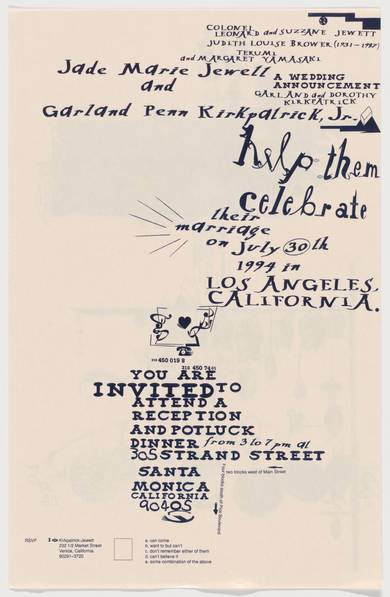 COLONEL
LEONARD and SUZZANE JEWETT
JUDITH LOUISE BROWER (1931-1987)
TERUMI
and MARGARET YAMASAKI
Jade Marie Jewett
and
A WEDDING
ANNOUNCEMENT
GARLAND and DOROTHY
KIRKPATRICK
Garland Penn Kirkpatrick, Jr.
help them
celebrate
their
marriage
on July 30th
1994 in
LOS ANGELES,
CALIFORNIA.
450 019 8
450 74
YOU ARE
INVITED TO
ATTEND A
RECEPTION
AND POTLUCK
DINNER from 3 to 7 pm at
305 STRAND STREET
two blocks west of Main Street
Four blocks south of Pico Boulevard
SANTA
MONICA
CALIFORNIA
90405
RSVP
Kirkpatrick-Jewett
232 1/2 Market Street
Venice, California
90291-3720
a. can come
b. want to but can't
c. don't remember either of them
d. can't believe it
e. some combination of the above